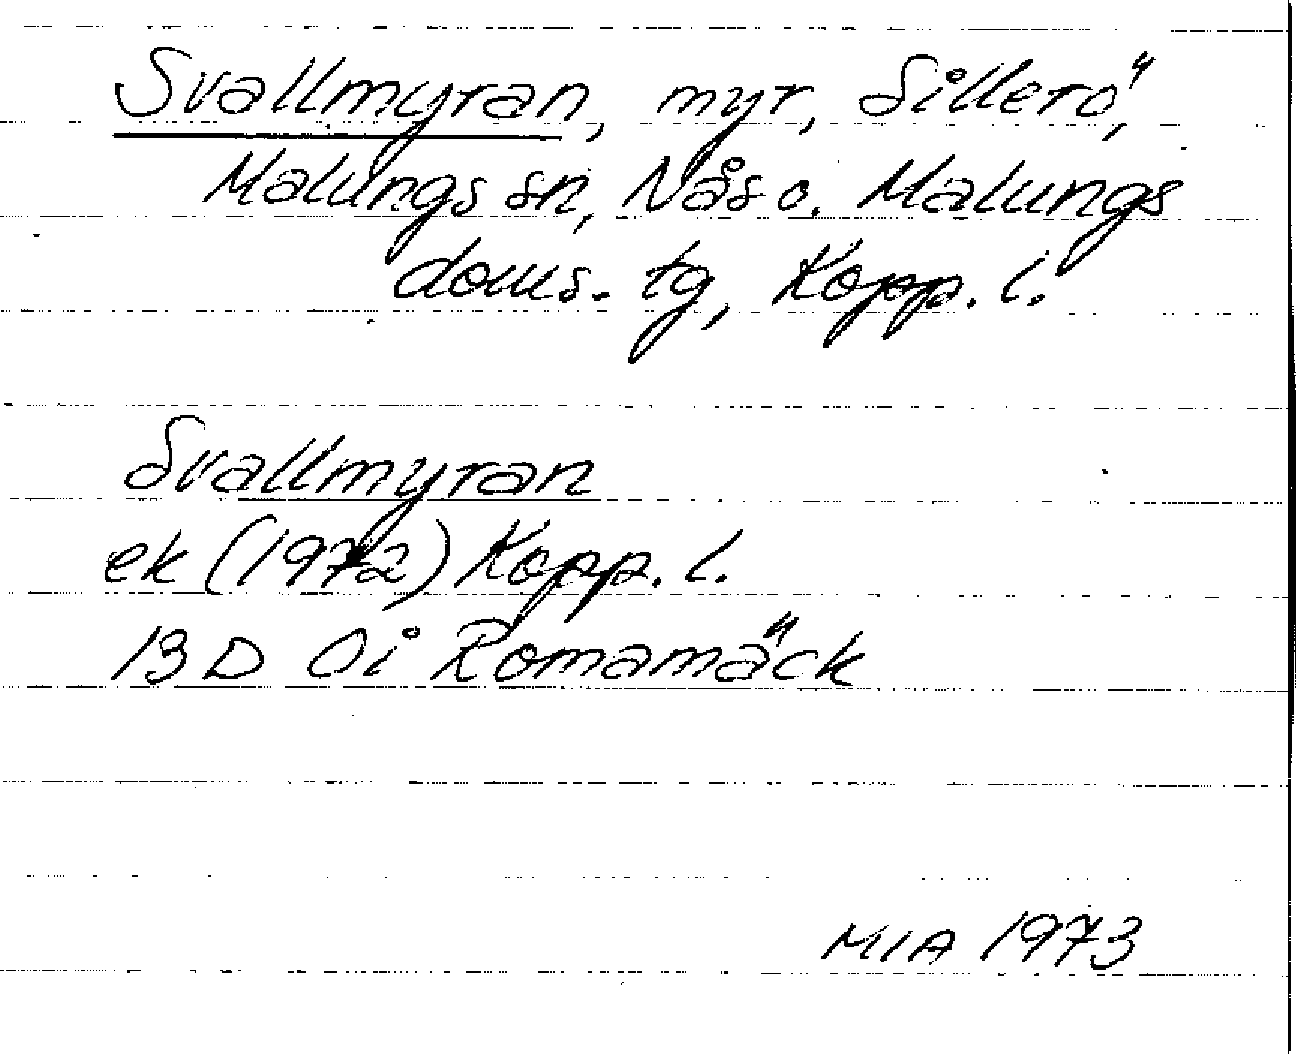 Svallmyran, myr, Sillerö,
Malungs sn, Nås o. Malungs
doms. tg, Kopp. l.
Svallmyran
ek (1972) Kopp. l.
13 D 0i Romamäck
MIA 1973